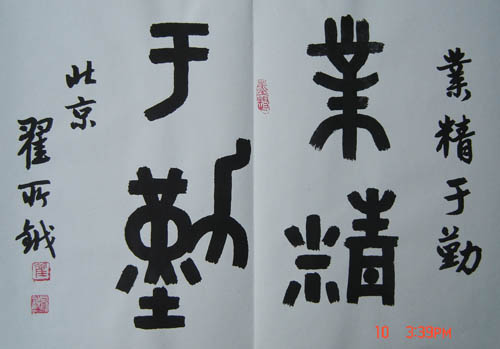 業精于勤
業精
于勤
北京
翟所鉞
10 3:39PM